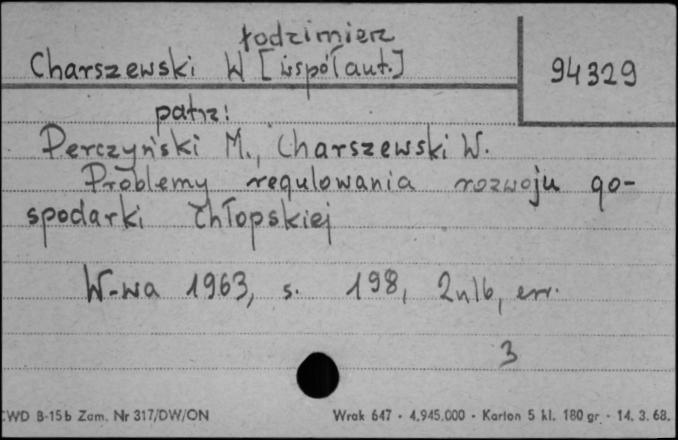 łodzimierz
Charszewski W [współaut.]
94329
patrz:
Perczyński M., Charszewski W.
Problemy regulowania rozwoju go-
spodarki chłopskiej
W-wa 1963, s. 198, 2nlb, err.
3
CWD B-15b Zam. Nr 317/DW/ON
Wrak 647 - 4.945.000 - Karton 5 kl. 180 gr - 14. 3. 68.